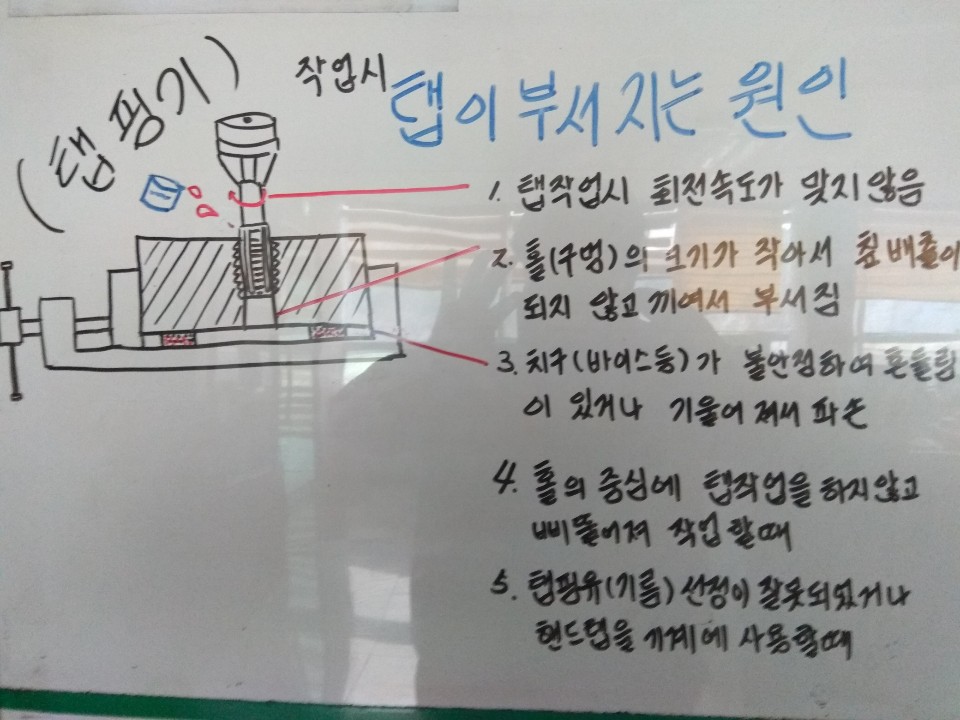 (탭핑기)
작업시 탭이 부서지는 원인
1. 탭작업시 회전속도가 맞지않음
2. 홀(구멍)의 크기가 작아서 칩배출이
되지 않고 끼여서 부서짐
3. 치구(바이스등)가 불안정하여 흔들림
이 있거나 기울어져서 파손
4. 홀의 중심에 탭작업을 하지않고
삐뚤어져 작업할때
5. 탭핑유(기름) 선정이 잘못되었거나
핸드탭을 기계에 사용할때